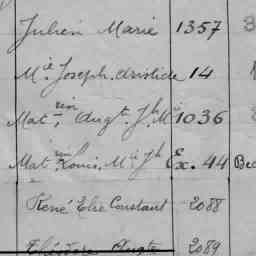 Julien Marie 1357
Mie Joseph Aristide 14
Matrin, Augte Jh Mie 1036
Matrin Louis, Mie Jh Ex. 44
René Elie Constant 2088
Théodore Augte 2089